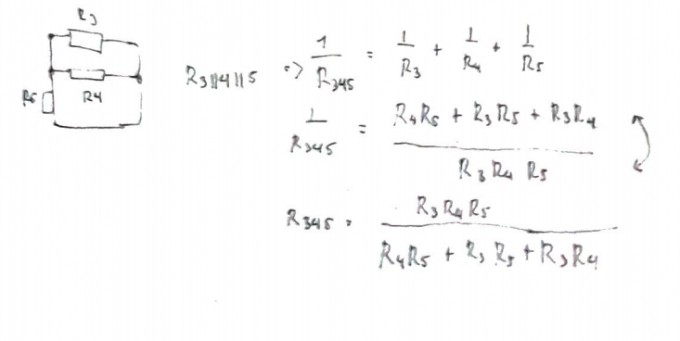 R3
R4
R5
R3||4||5 => 1/R345 = 1/R3 + 1/R4 + 1/R5
1/R345 = (R4R5 + R3R5 + R3R4)/(R3R4R5)
R345 = R3R4R5/(R4R5 + R3R5 + R3R4)